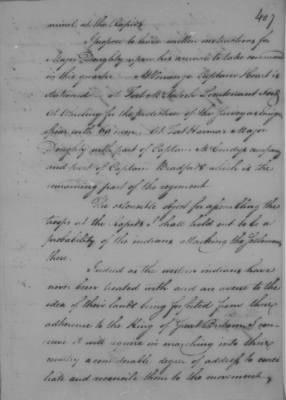 407
arrival at the Rapids
I propose to leave written instructions for
Major Doughty upon his arrival to take command
in this quarter. At Venango Captain Heart is
stationed at Fort McIntosh Lieutenant
At Wheeling for the protection of the
with men. At Fort Harmar Major
Doughty with part of Captain McCurdy's company
and part of Captain Bradfords which is the
remaining part of the regiment.
The ostensible object for assembling the
troops at the Rapids I shall hold out to be a
probability of the indians attacking the
there.
Indeed as the western indians have
never been treated with and are averse to the
idea of their lands being forfeited from their
adherence to the King of Great Britain, I con-
ceive it will require in marching into their
country a considerable degree of address to conci-
liate and reconcile them to the movement,